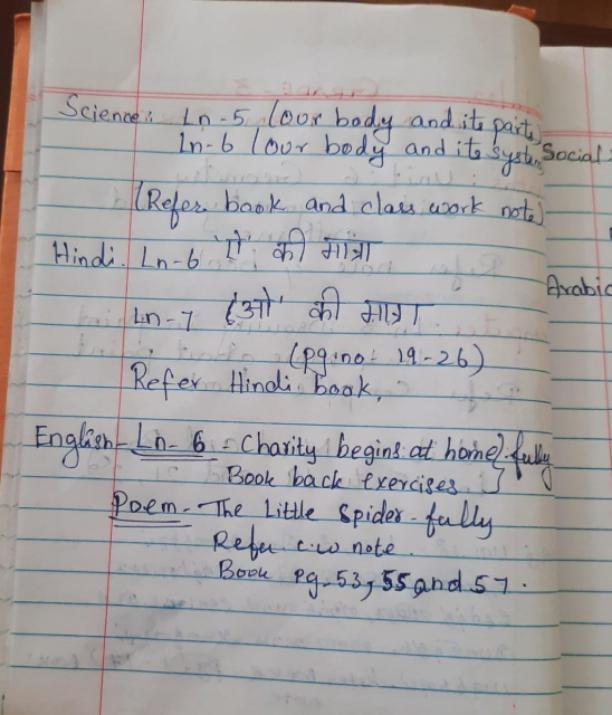 Science: Ln-5 (Our body and its parts)
Ln-6 (Our body and its system
(Refer book and class work note)
Hindi. Ln-6 'ऐ' की मात्रा
Ln-7 'ओ' की मात्रा
(pg.no: 19-26)
Refer Hindi book.
English- Ln-6 - Charity begins at home}-fully
Book back exercises
Poem- The Little Spider-fully
Refer c.w note.
Book pg.53, 55 and 57.
Social:
Arabic